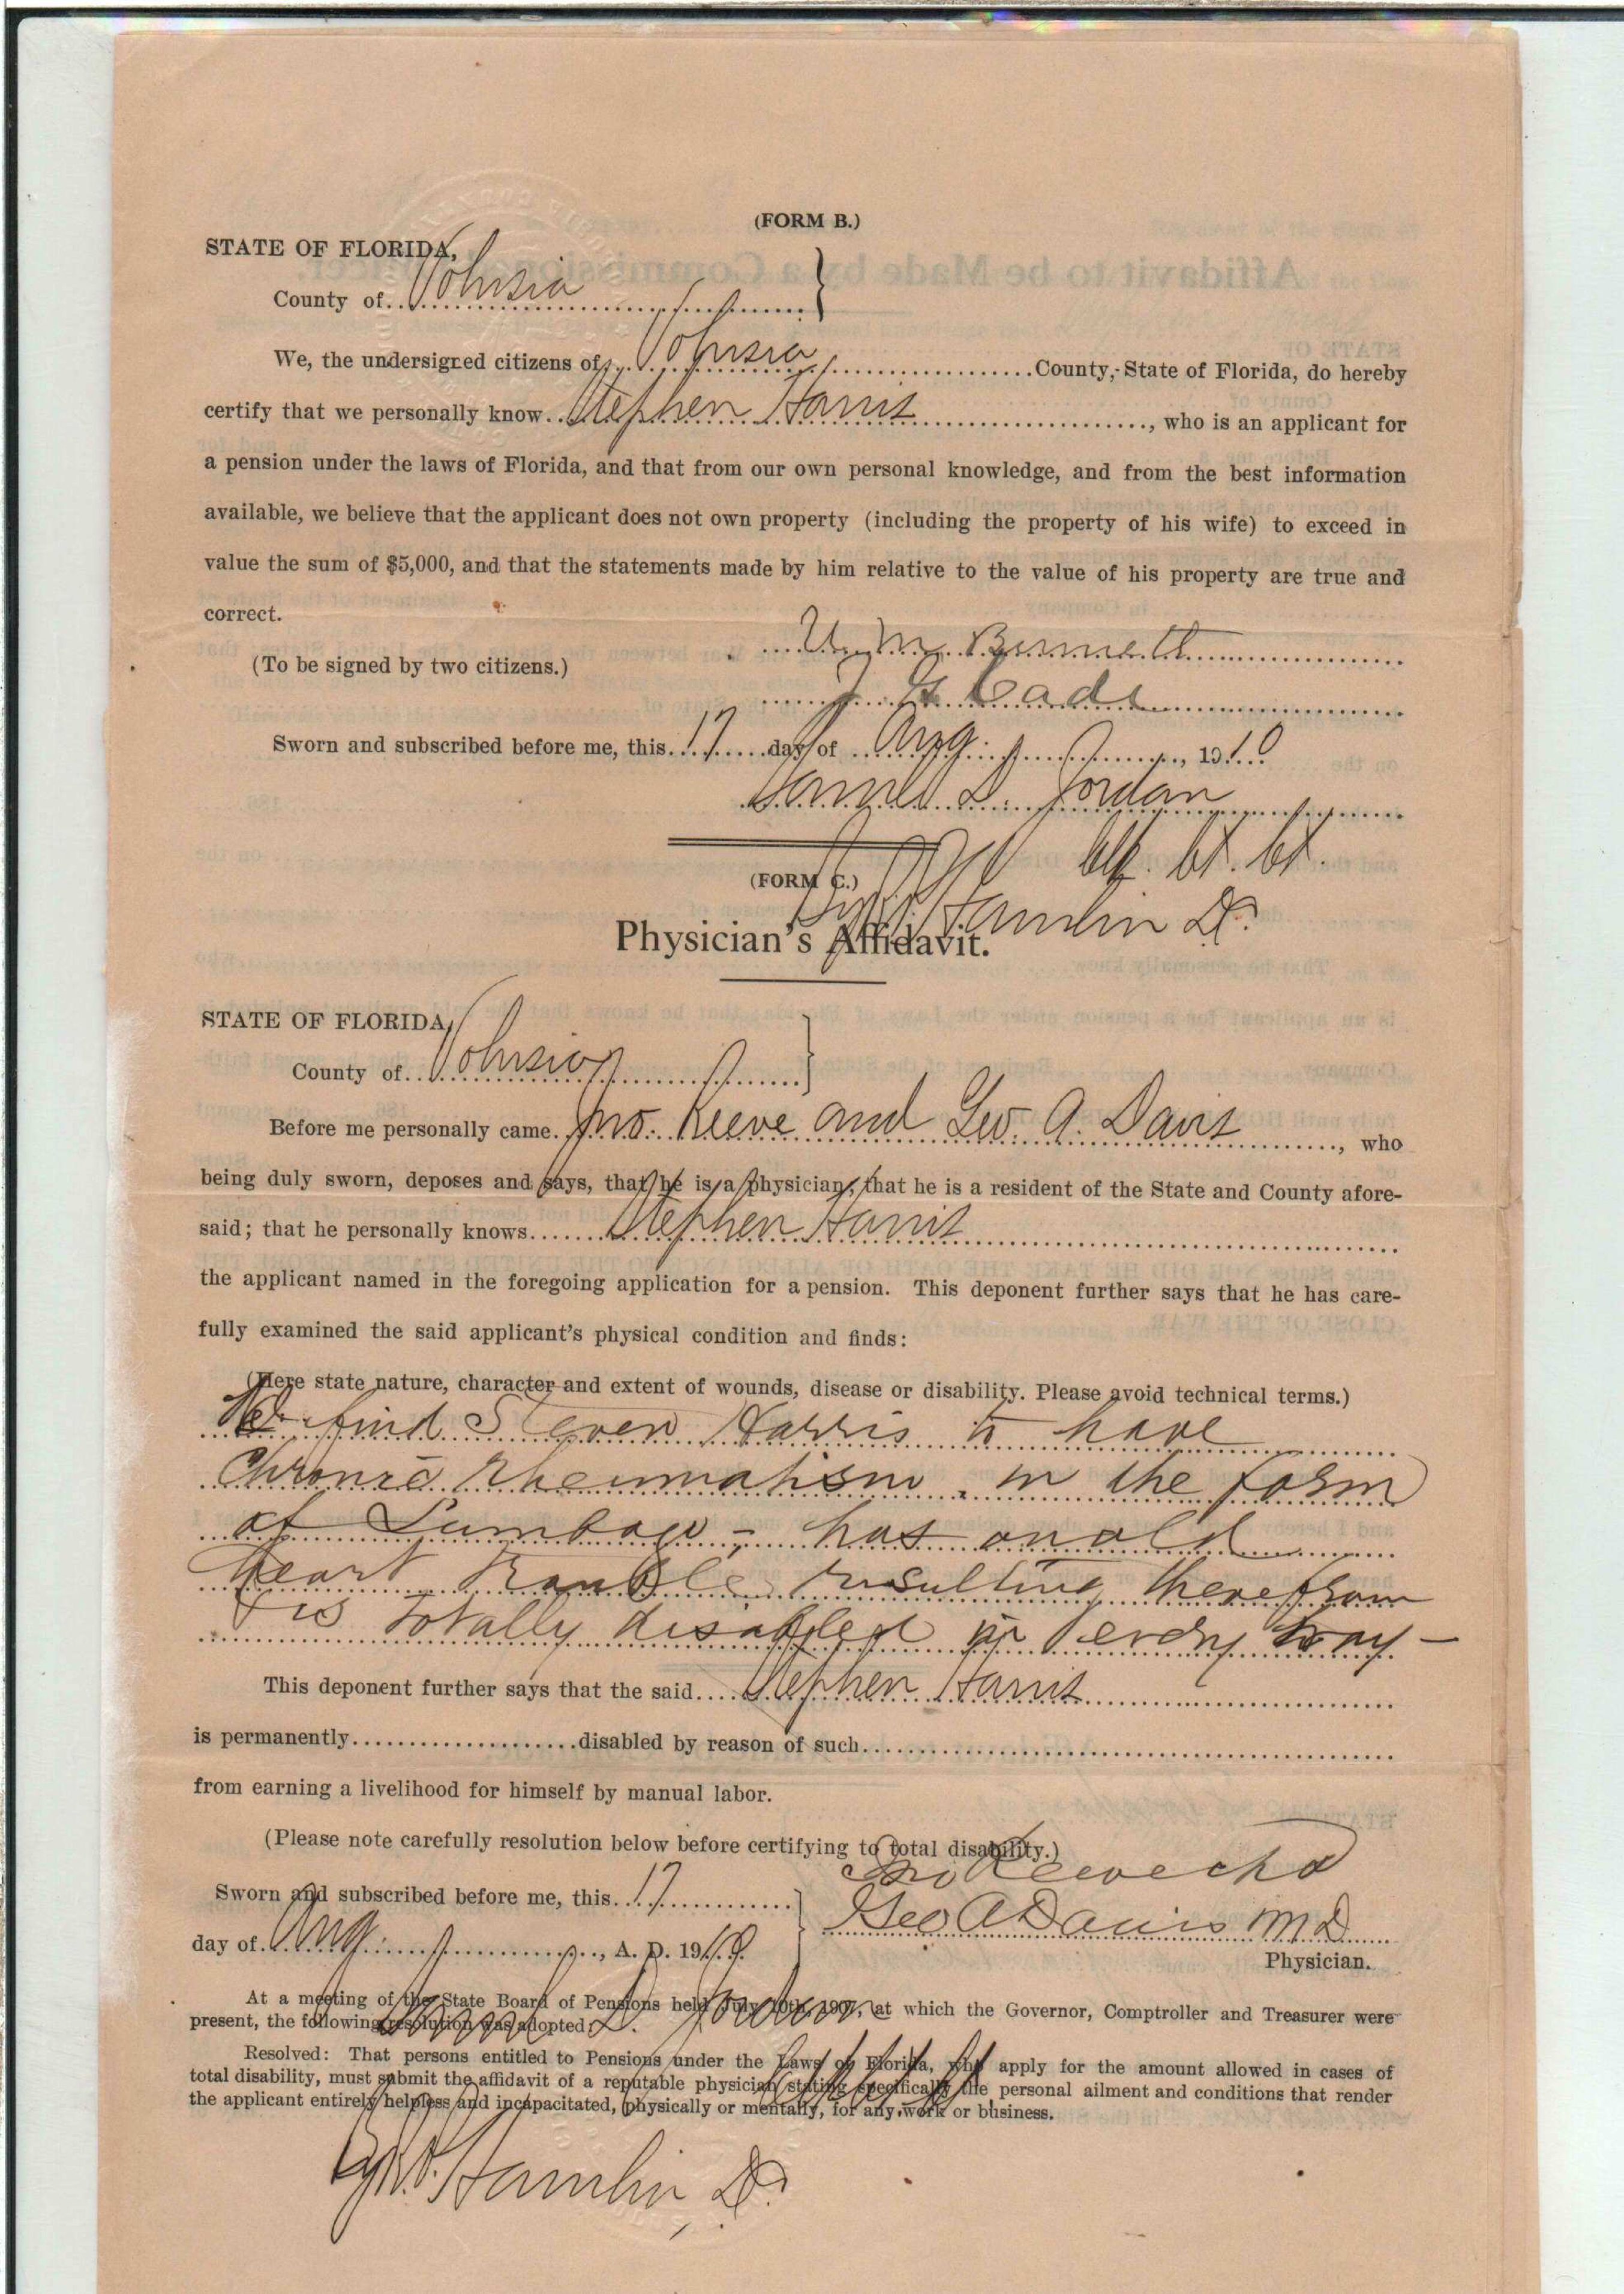 (FORM B.)
STATE OF FLORIDA,
County of Volusia
We, the undersigned citizens of Volusia County, State of Florida, do hereby
certify that we personally know Stephen Harris, who is an applicant for
a pension under the laws of Florida, and that from our own personal knowledge, and from the best information
available, we believe that the applicant does not own property (including the property of his wife) to exceed in
value the sum of $5,000, and that the statements made by him relative to the value of his property are true and
correct.
U. M. Bennett
(To be signed by two citizens.)
Cade
Sworn and subscribed before me, this 17 day of Aug, 1910
Samuel D. Jordan
Clk. Ct. Ct.
(FORM C.)
Hamlin D.
Physician's Affidavit.
STATE OF FLORIDA,
County of Volusia
Before me personally came Jno. Reeve and Geo. A. Davis, who
being duly sworn, deposes and says, that he is a physician, that he is a resident of the State and County afore-
said; that he personally knows Stephen Harris
the applicant named in the foregoing application for a pension. This deponent further says that he has care-
fully examined the said applicant's physical condition and finds:
(Here state nature, character and extent of wounds, disease or disability. Please avoid technical terms.)
We find Steven Harris to have
Chronic Rheumatism in the form
of Lumbago - has an old
heart trouble resulting therefrom
& is totally disabled in every way -
This deponent further says that the said Stephen Harris
is permanently disabled by reason of such
from earning a livelihood for himself by manual labor.
(Please note carefully resolution below before certifying to total disability.)
Jno Reeve
Sworn and subscribed before me, this 17
Geo A Davis M D
day of Aug, A. D. 1910.
Physician.
At a meeting of the State Board of Pensions held July 10th, 1907, at which the Governor, Comptroller and Treasurer were
present, the following resolution was adopted:
Samuel D. Jordan
Resolved: That persons entitled to Pensions under the Laws of Florida, who apply for the amount allowed in cases of
total disability, must submit the affidavit of a reputable physician stating specifically the personal ailment and conditions that render
the applicant entirely helpless and incapacitated, physically or mentally, for any work or business.
Clk Ct Ct
Hamlin D.